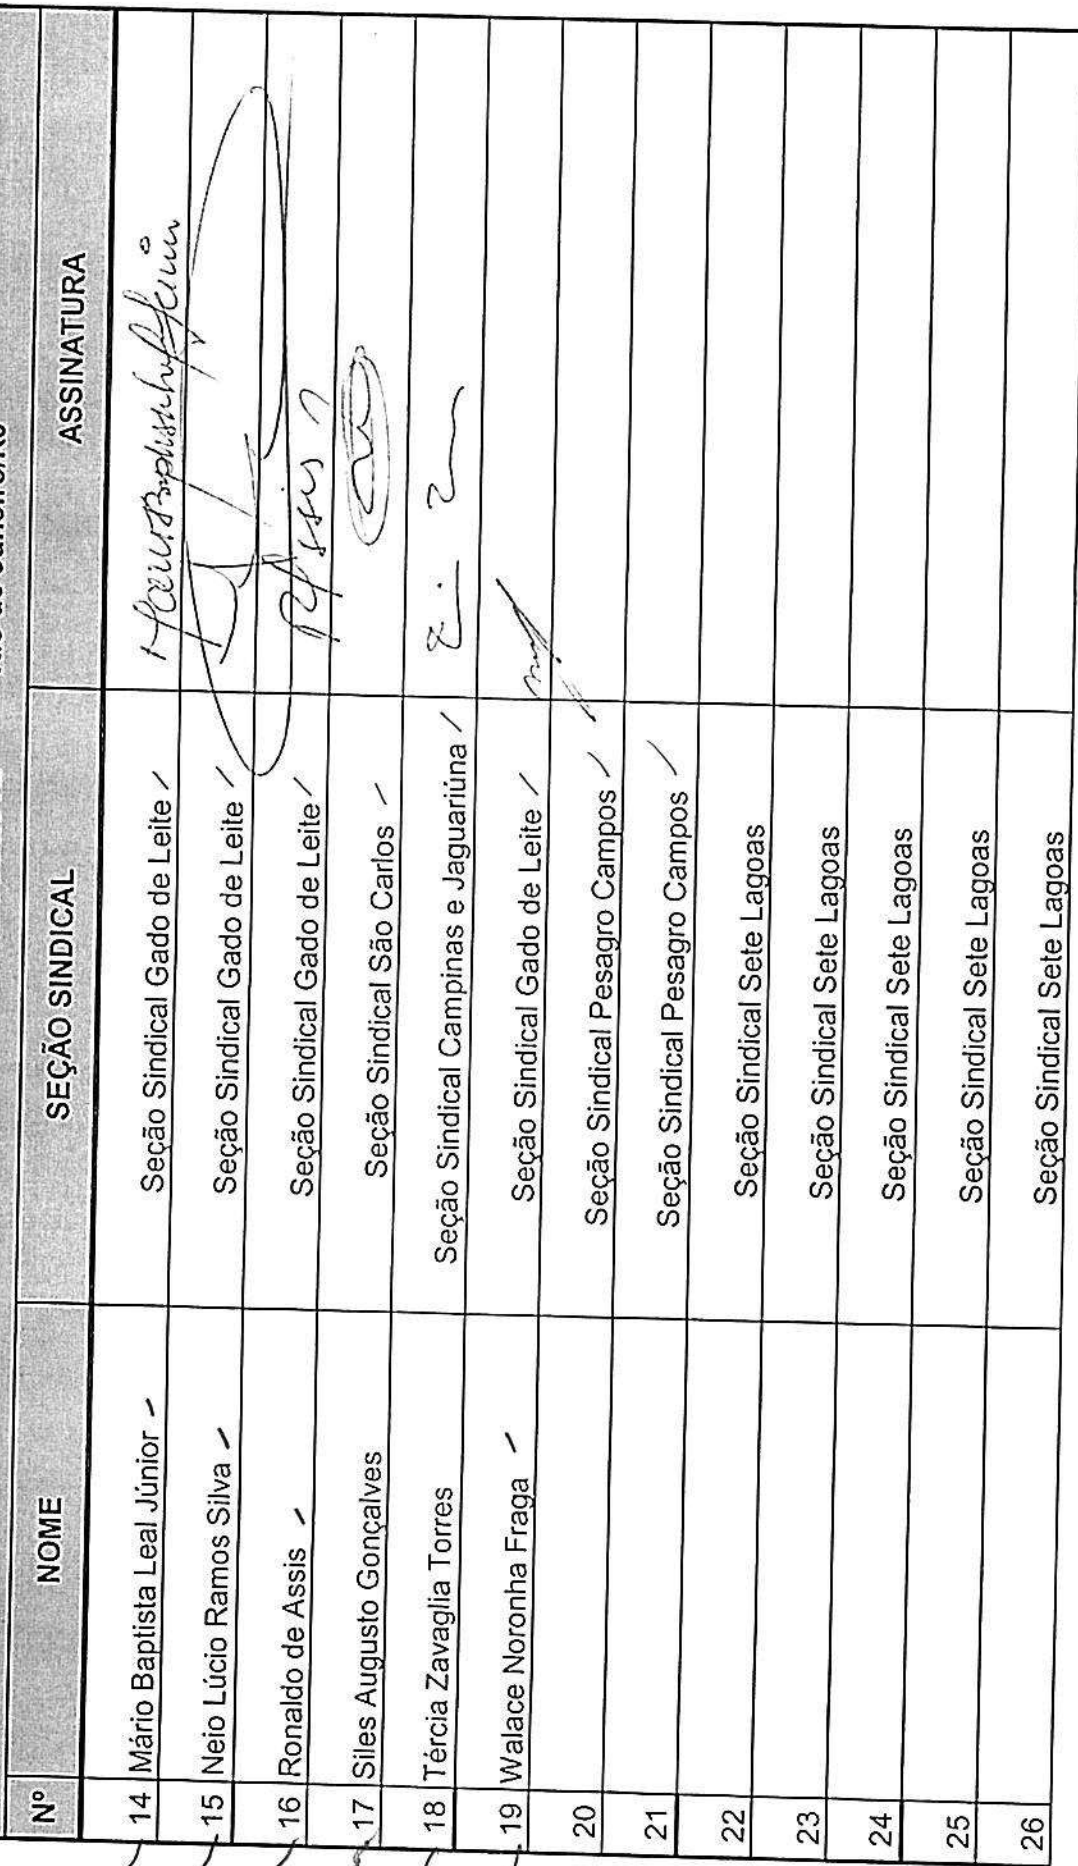 Nº NOME SEÇÃO SINDICAL ASSINATURA
14 Mário Baptista Leal Júnior Seção Sindical Gado de Leite
15 Neio Lúcio Ramos Silva Seção Sindical Gado de Leite
16 Ronaldo de Assis Seção Sindical Gado de Leite
17 Siles Augusto Gonçalves Seção Sindical São Carlos
18 Tércia Zavaglia Torres Seção Sindical Campinas e Jaguariúna
19 Walace Noronha Fraga Seção Sindical Gado de Leite
20 Seção Sindical Pesagro Campos
21 Seção Sindical Pesagro Campos
22 Seção Sindical Sete Lagoas
23 Seção Sindical Sete Lagoas
24 Seção Sindical Sete Lagoas
25 Seção Sindical Sete Lagoas
26 Seção Sindical Sete Lagoas